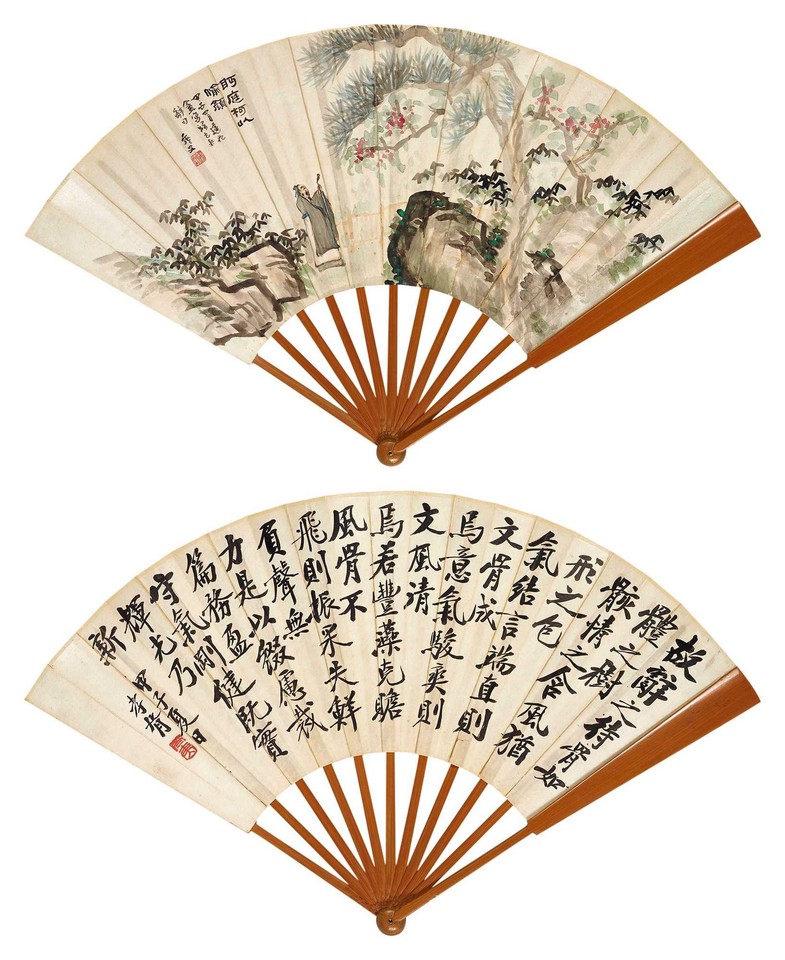 眄庭柯以
愉顏
甲子四月
故辭之待骨如
體之樹
骸情之含風猶
形之包
氣結言端直則
文骨成
焉意氣駿爽則
文風清
焉若豐藻克贍
風骨不
飛則振采失鮮
負聲無
力是以綴慮裁
篇務盈
守氣剛健既實
輝光乃
新
甲子夏日
孝胥